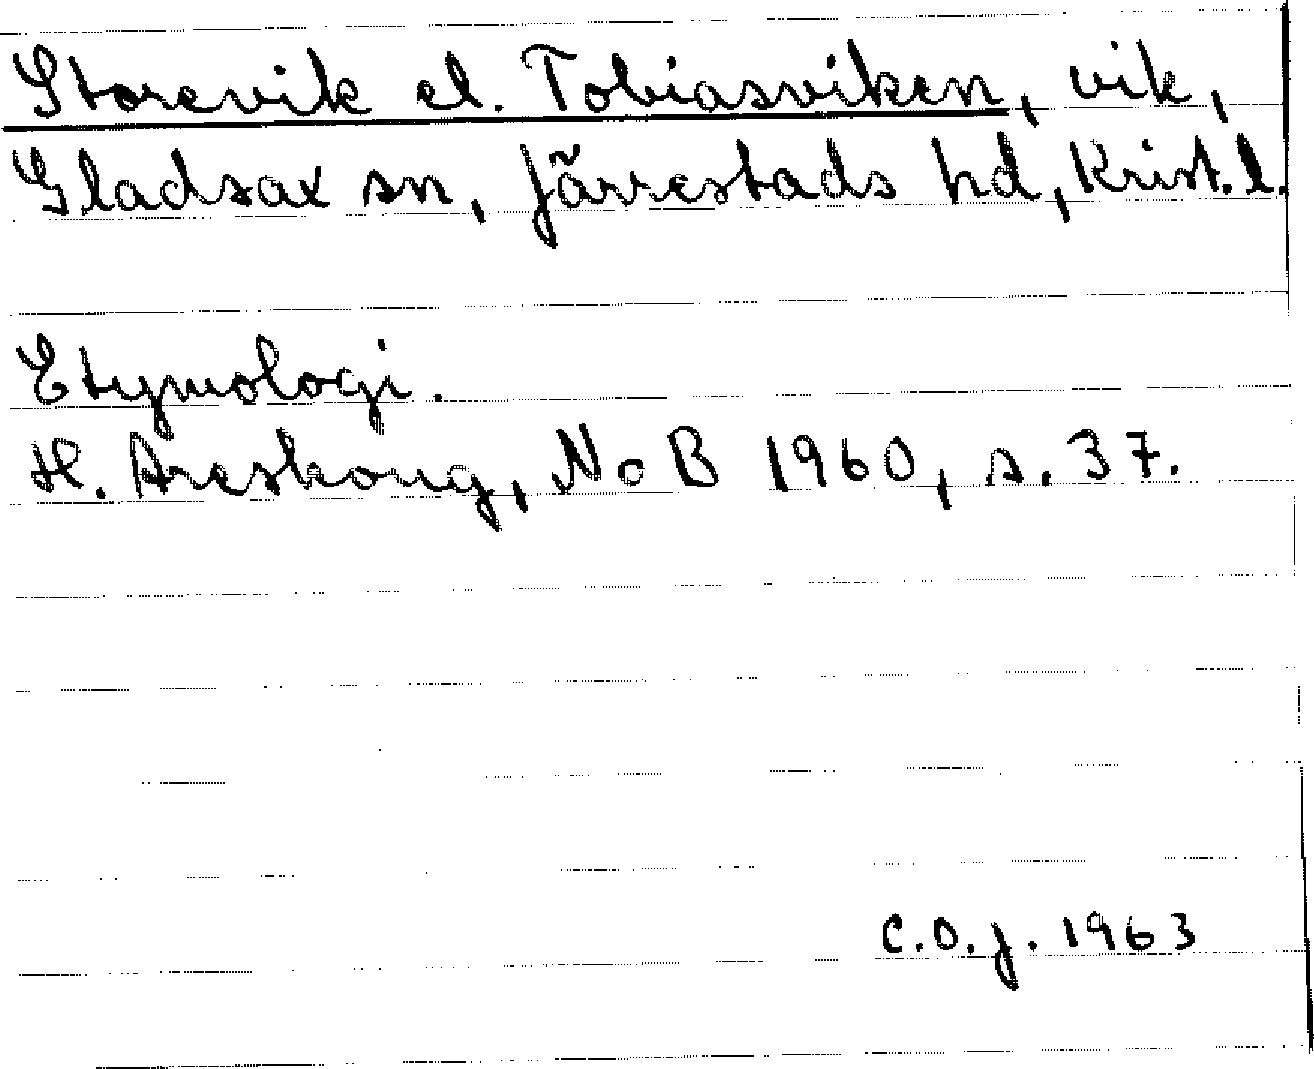 Storevik el. Tobiasviken, vik,
Gladsax sn, Järrestads hd, Krist. l.
Etymologi.
H. Areskoug, NoB 1960, s. 37.
C.O.J. 1963